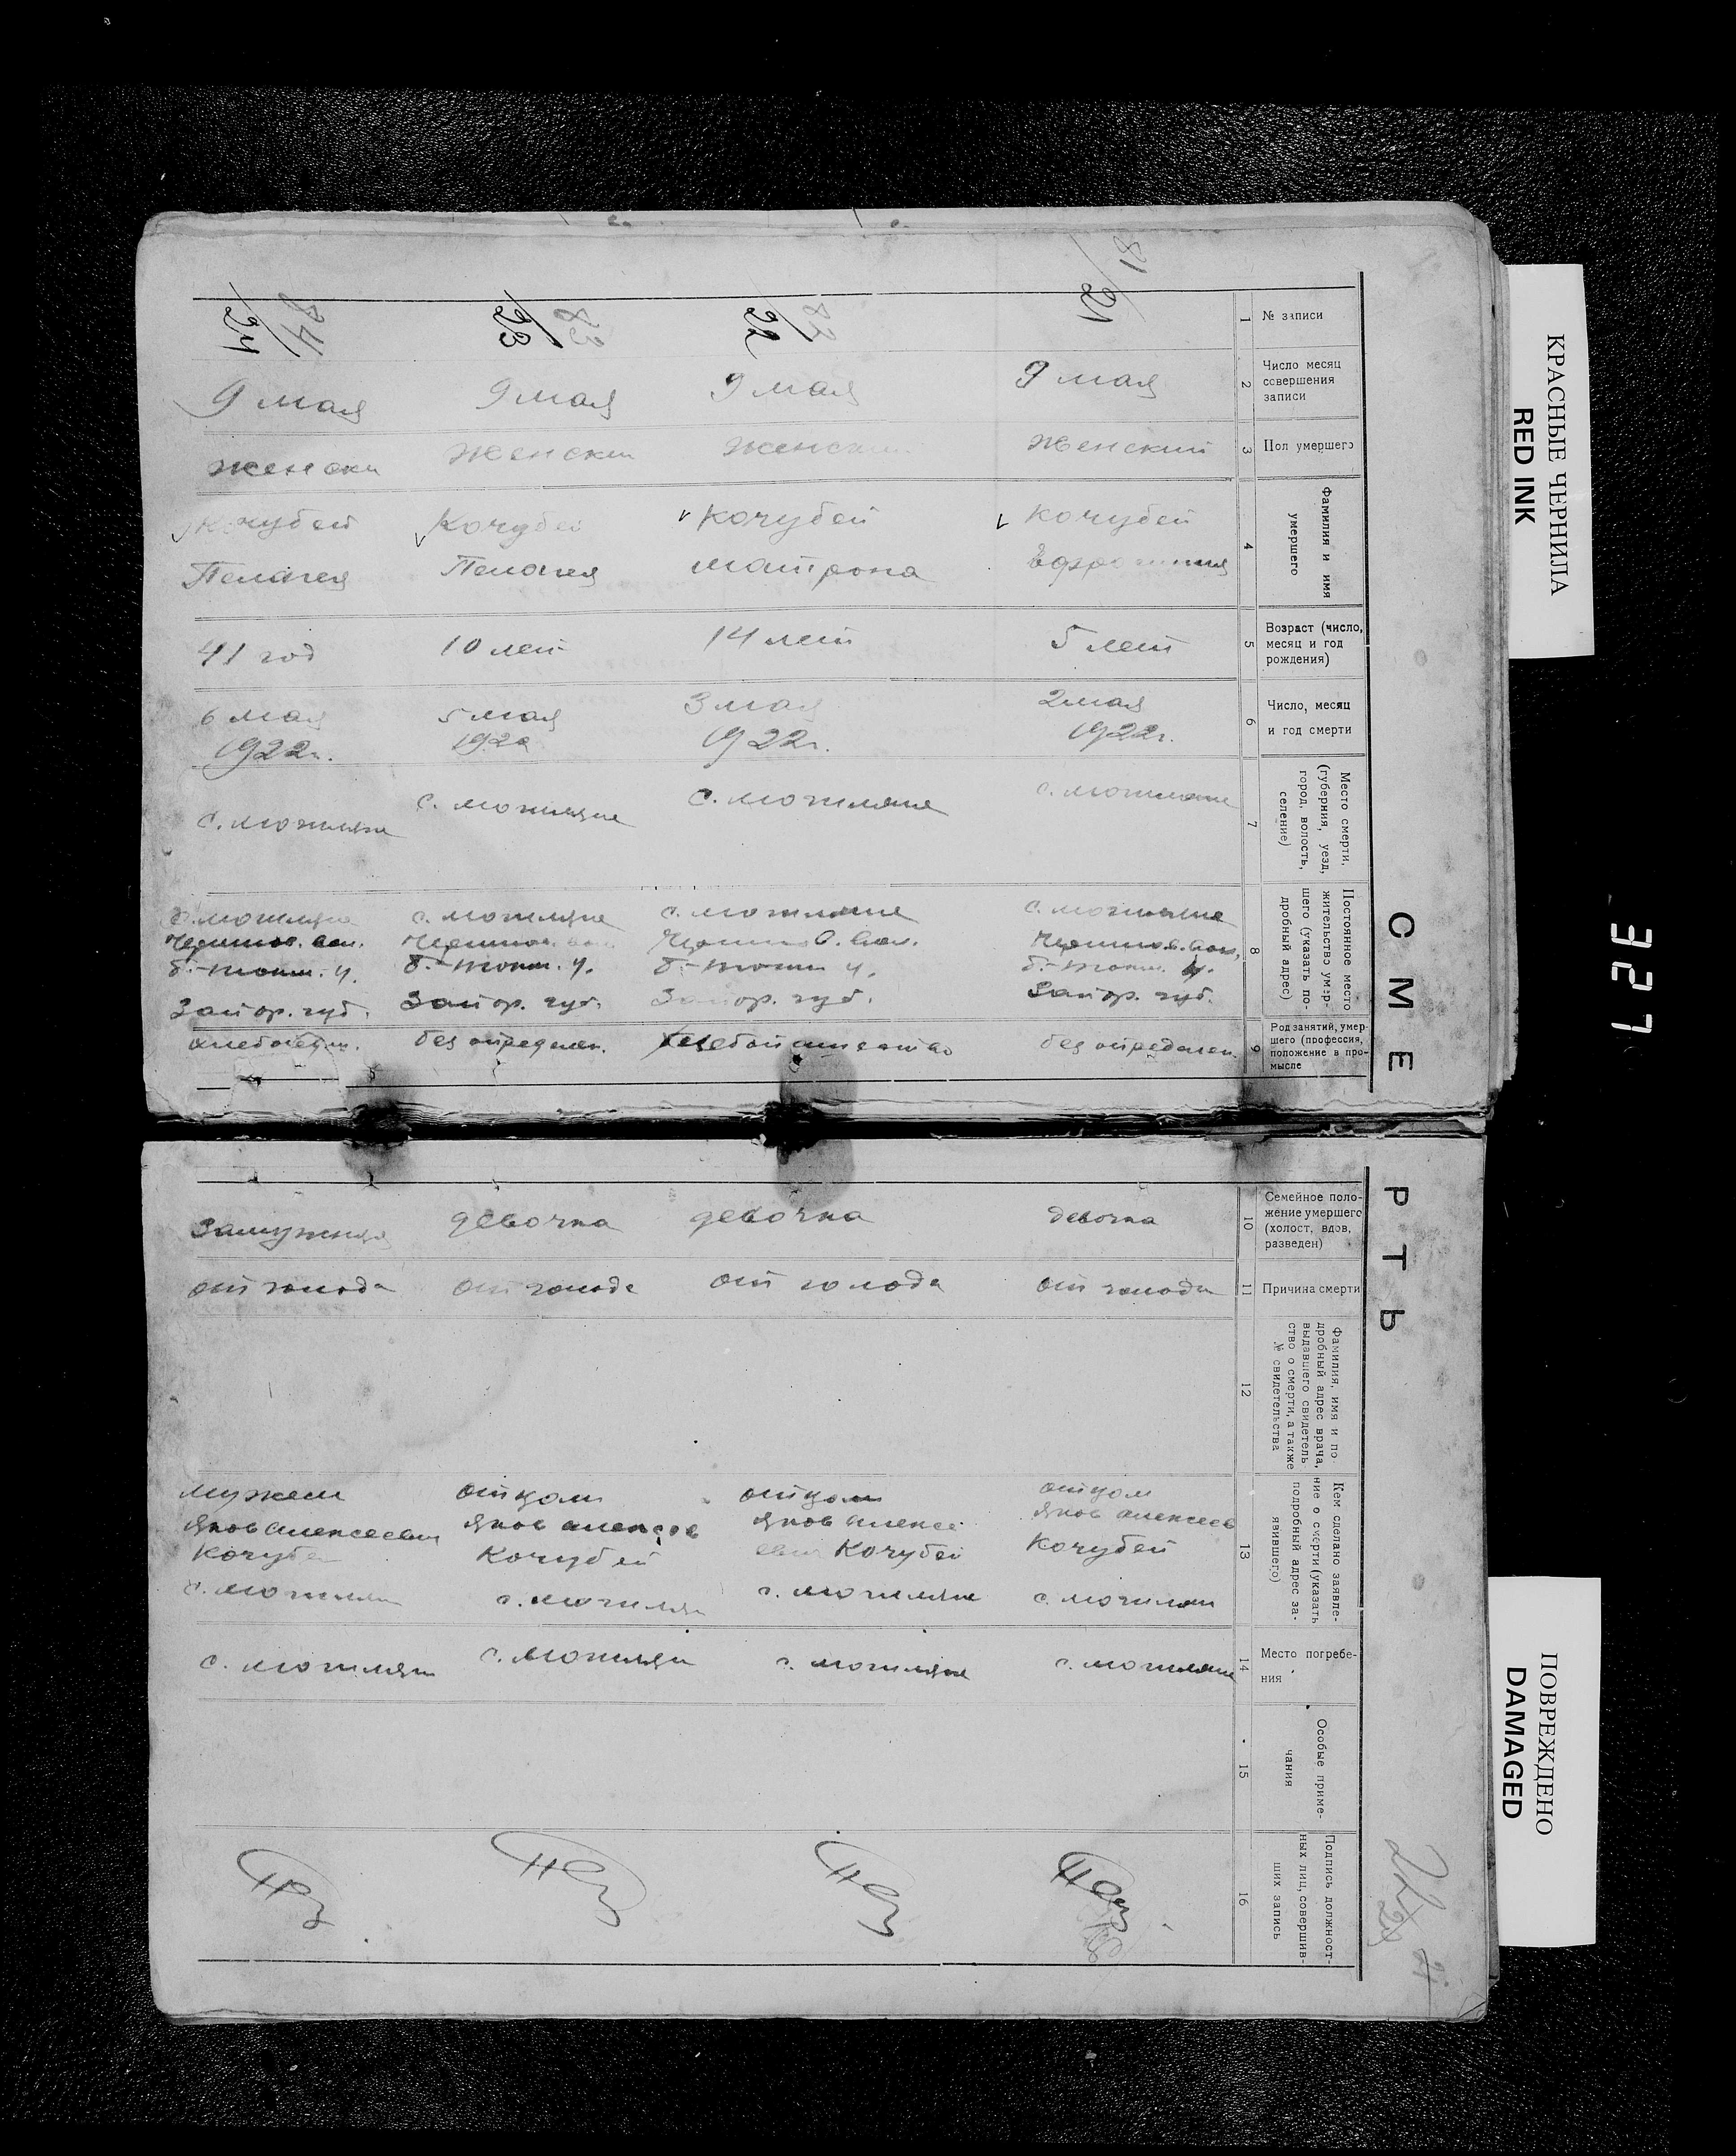 СМЕРТЬ
КРАСНЫЕ ЧЕРНИЛА
RED INK
327
ПОВРЕЖДЕНО
DAMAGED
1
№ записи
81
21
82
22
83
23
84
24
2
Число месяц
совершения
записи
9 мая
9 мая
9 мая
9 мая
3
Пол умершего
женский
женски
женски
женски
4
Фамилия и имя
умершего
Кочубей
Кочубей
Матрона
Кочубей
Пелагея
Кочубей
Пелагея
5
Возраст (число,
месяц и год
рождения)
5 лет
14 лет
10 лет
41 год
6
Число, месяц
и год смерти
2 мая
1922г.
3 мая
1922г.
5 мая
1922
6 мая
1922г.
7
Место смерти,
(губерния, уезд,
город, волость,
селение)
с. могиляне
с. могиляне
с. могиляне
с. могиляне
8
Постоянное место
жительство умер-
шего (указать по-
дробный адрес)
с. могиляне
б.-токм. у.
Запор. губ.
с. могиляне
б.-токм у.
Запор. губ.
с. могиляне
б.-токм. у.
Запор. губ.
с. могиляне
б.-токм. у.
Запор. губ.
9
Род занятий, умер-
шего (профессия,
положение в про-
мысле
без определен.
хлебопашество
без определен.
хлебопаш.
10
Семейное поло-
жение умершего
(холост, вдов,
разведен)
девочка
девочка
девочка
Замужняя
11
Причина смерти
от голода
от голода
от голода
от голода
12
Фамилия, имя и по-
дробный адрес врача,
выдавшего свидетель-
ство о смерти, а также
№ свидетельства
13
Кем сделано заявле-
ние о смерти (указать
подробный адрес за-
явившего)
отцом
Яков Алексеев
Кочубей
с. могиляне
отцом
Яков Алексе
евич Кочубей
с. могиляне
отцом
Яков Алексеев
Кочубей
с. могилян
мужем
Яков Алексеевич
Кочубей
с. могилян
14
Место погребе-
ния
с. могиляне
с. могиляне
с. могиляне
с. могиляне
15
Особые приме-
чания
16
Подпись должност-
ных лиц, совершив-
ших запись